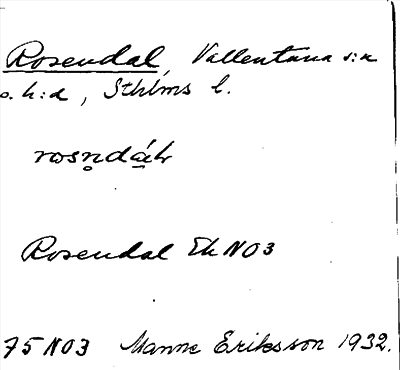 Rosendal, Vallentuna s:n
o. h:d, Sthlms l.
rosn̥dáh
Rosendal Ek NO3
75 NO3 Manne Eriksson 1932.